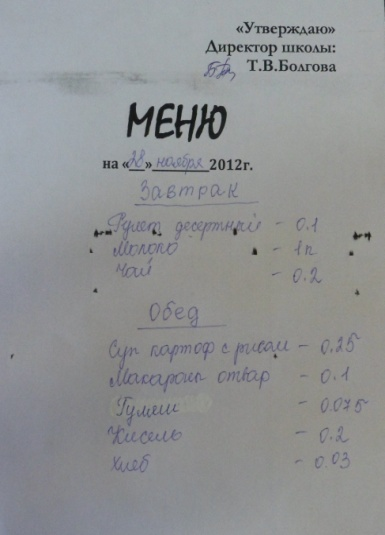 «Утверждаю»
Директор школы:
Т.В.Болгова
МЕНЮ
на «28» ноября 2012г.
Завтрак
Рулет десертный - 0.1
Молоко - 1п
Чай - 0.2
Обед
Суп картоф с рисом - 0.25
Макароны отвар - 0.1
Гуляш - 0.075
Кисель - 0.2
Хлеб - 0.03